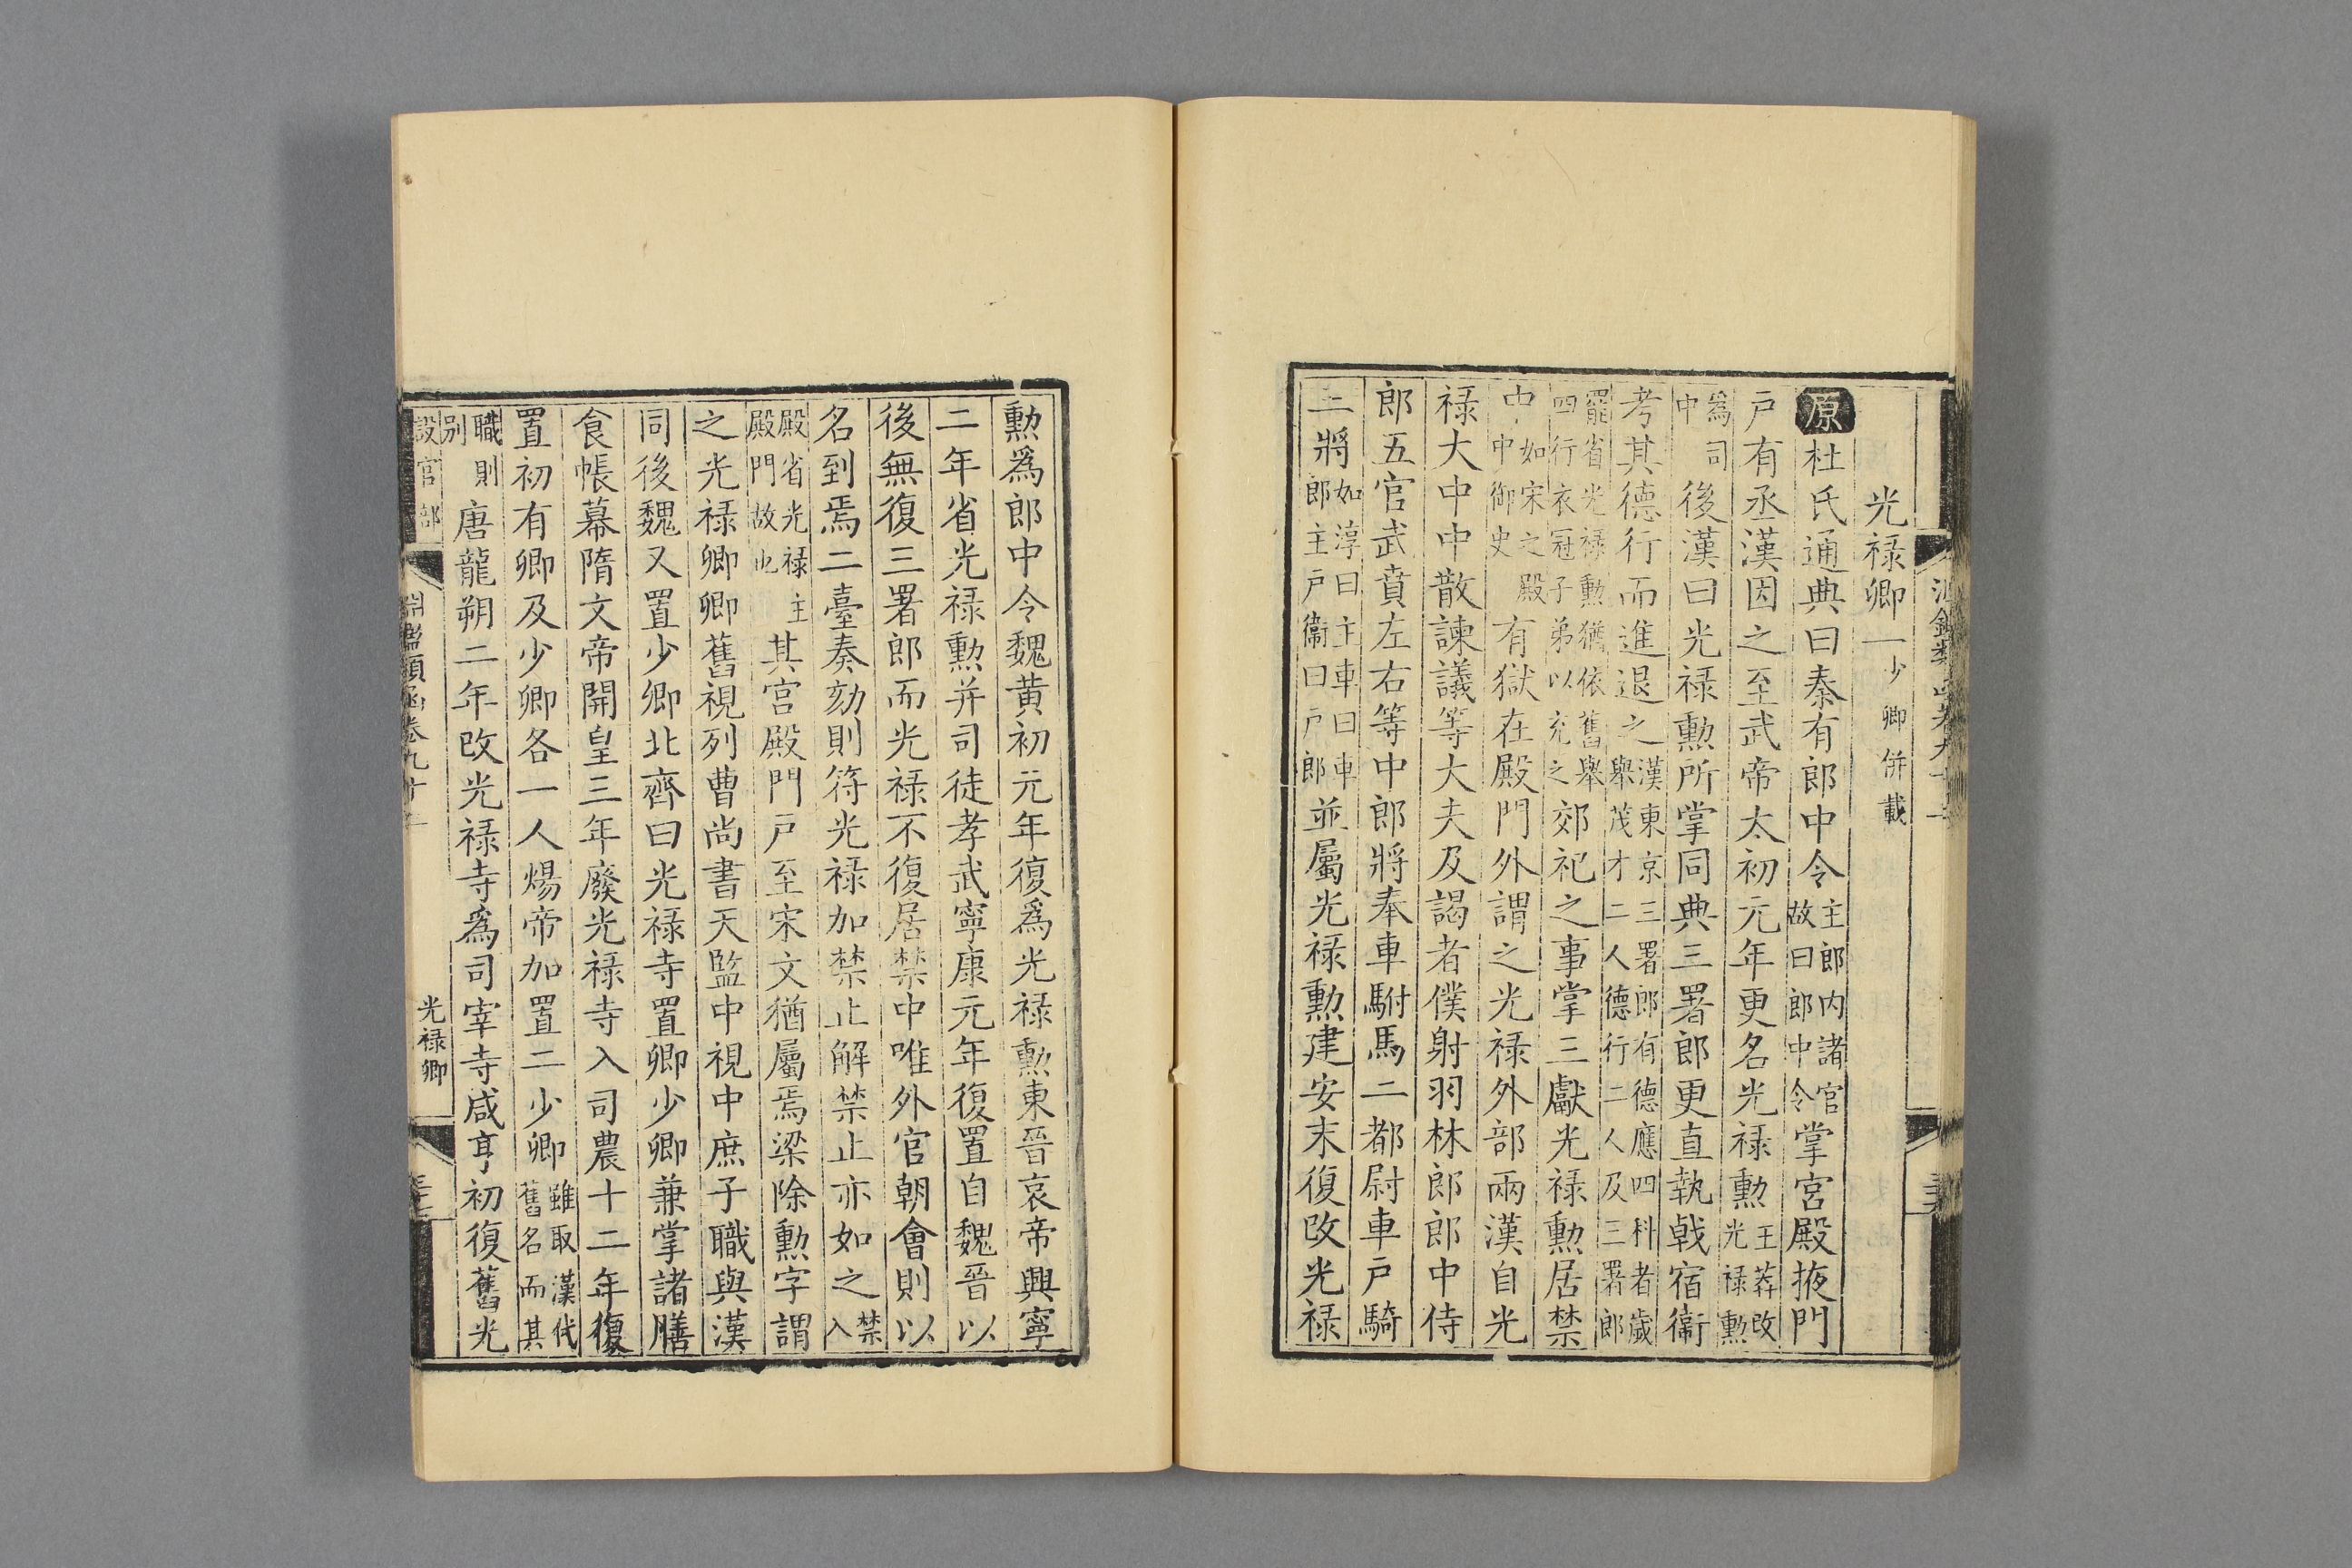 光禄卿一少卿併載
原杜氏通典曰秦有郎中令主郎内諸官故曰郎中令掌宮殿掖門
戸有丞漢因之至武帝太初元年更名光禄勲王莽改光禄勲
爲司中後漢曰光禄勲所掌同典三署郎更直執戟宿衞
考其德行而進退之漢東京三署郎有德應四科者歲舉茂才二人德行二人及三署郎
罷省光禄勲猶依舊舉四行衣冠子弟以充之郊祀之事掌三獻光禄勲居禁
中如宋之殿中御史有獄在殿門外謂之光禄外部兩漢自光
禄大中中散諫議等大夫及謁者僕射羽林郎郎中侍
郎五官武賁左右等中郎將奉車駙馬二都尉車戸騎
三將如淳曰主車曰車郎主戸衞曰戸郎並屬光禄勲建安末復改光禄
勲爲郎中令魏黄初元年復爲光禄勲東晉哀帝興寧
二年省光禄勲并司徒孝武寧康元年復置自魏晉以
後無復三署郎而光禄不復居禁中唯外官朝會則以
名到焉二臺奏劾則符光禄加禁止解禁止亦如之禁入
殿省光禄主殿門故也其宮殿門戸至宋文猶屬焉梁除勲字謂
之光禄卿卿舊視列曹尚書天監中視中庶子職與漢
同後魏又置少卿北齊曰光禄寺置卿少卿兼掌諸膳
食帳幕隋文帝開皇三年廢光禄寺入司農十二年復
置初有卿及少卿各一人煬帝加置二少卿雖取漢代舊名而其
職則别唐龍朔二年改光禄寺爲司宰寺咸亨初復舊光
設官部 淵鑑類函卷九十一 光禄卿